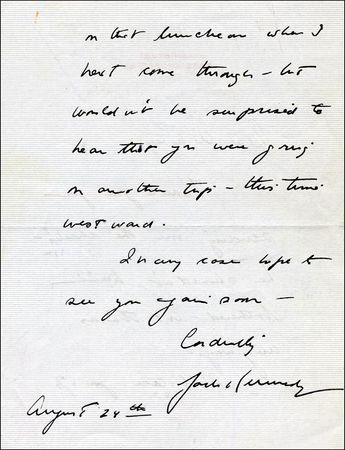 on that luncheon when I
next come through - but
wouldn't be surprised to
hear that you were going
on another trip - this time
westward.
In any case hope to
see you again soon -
Cordially
Jack Kennedy
August 24th